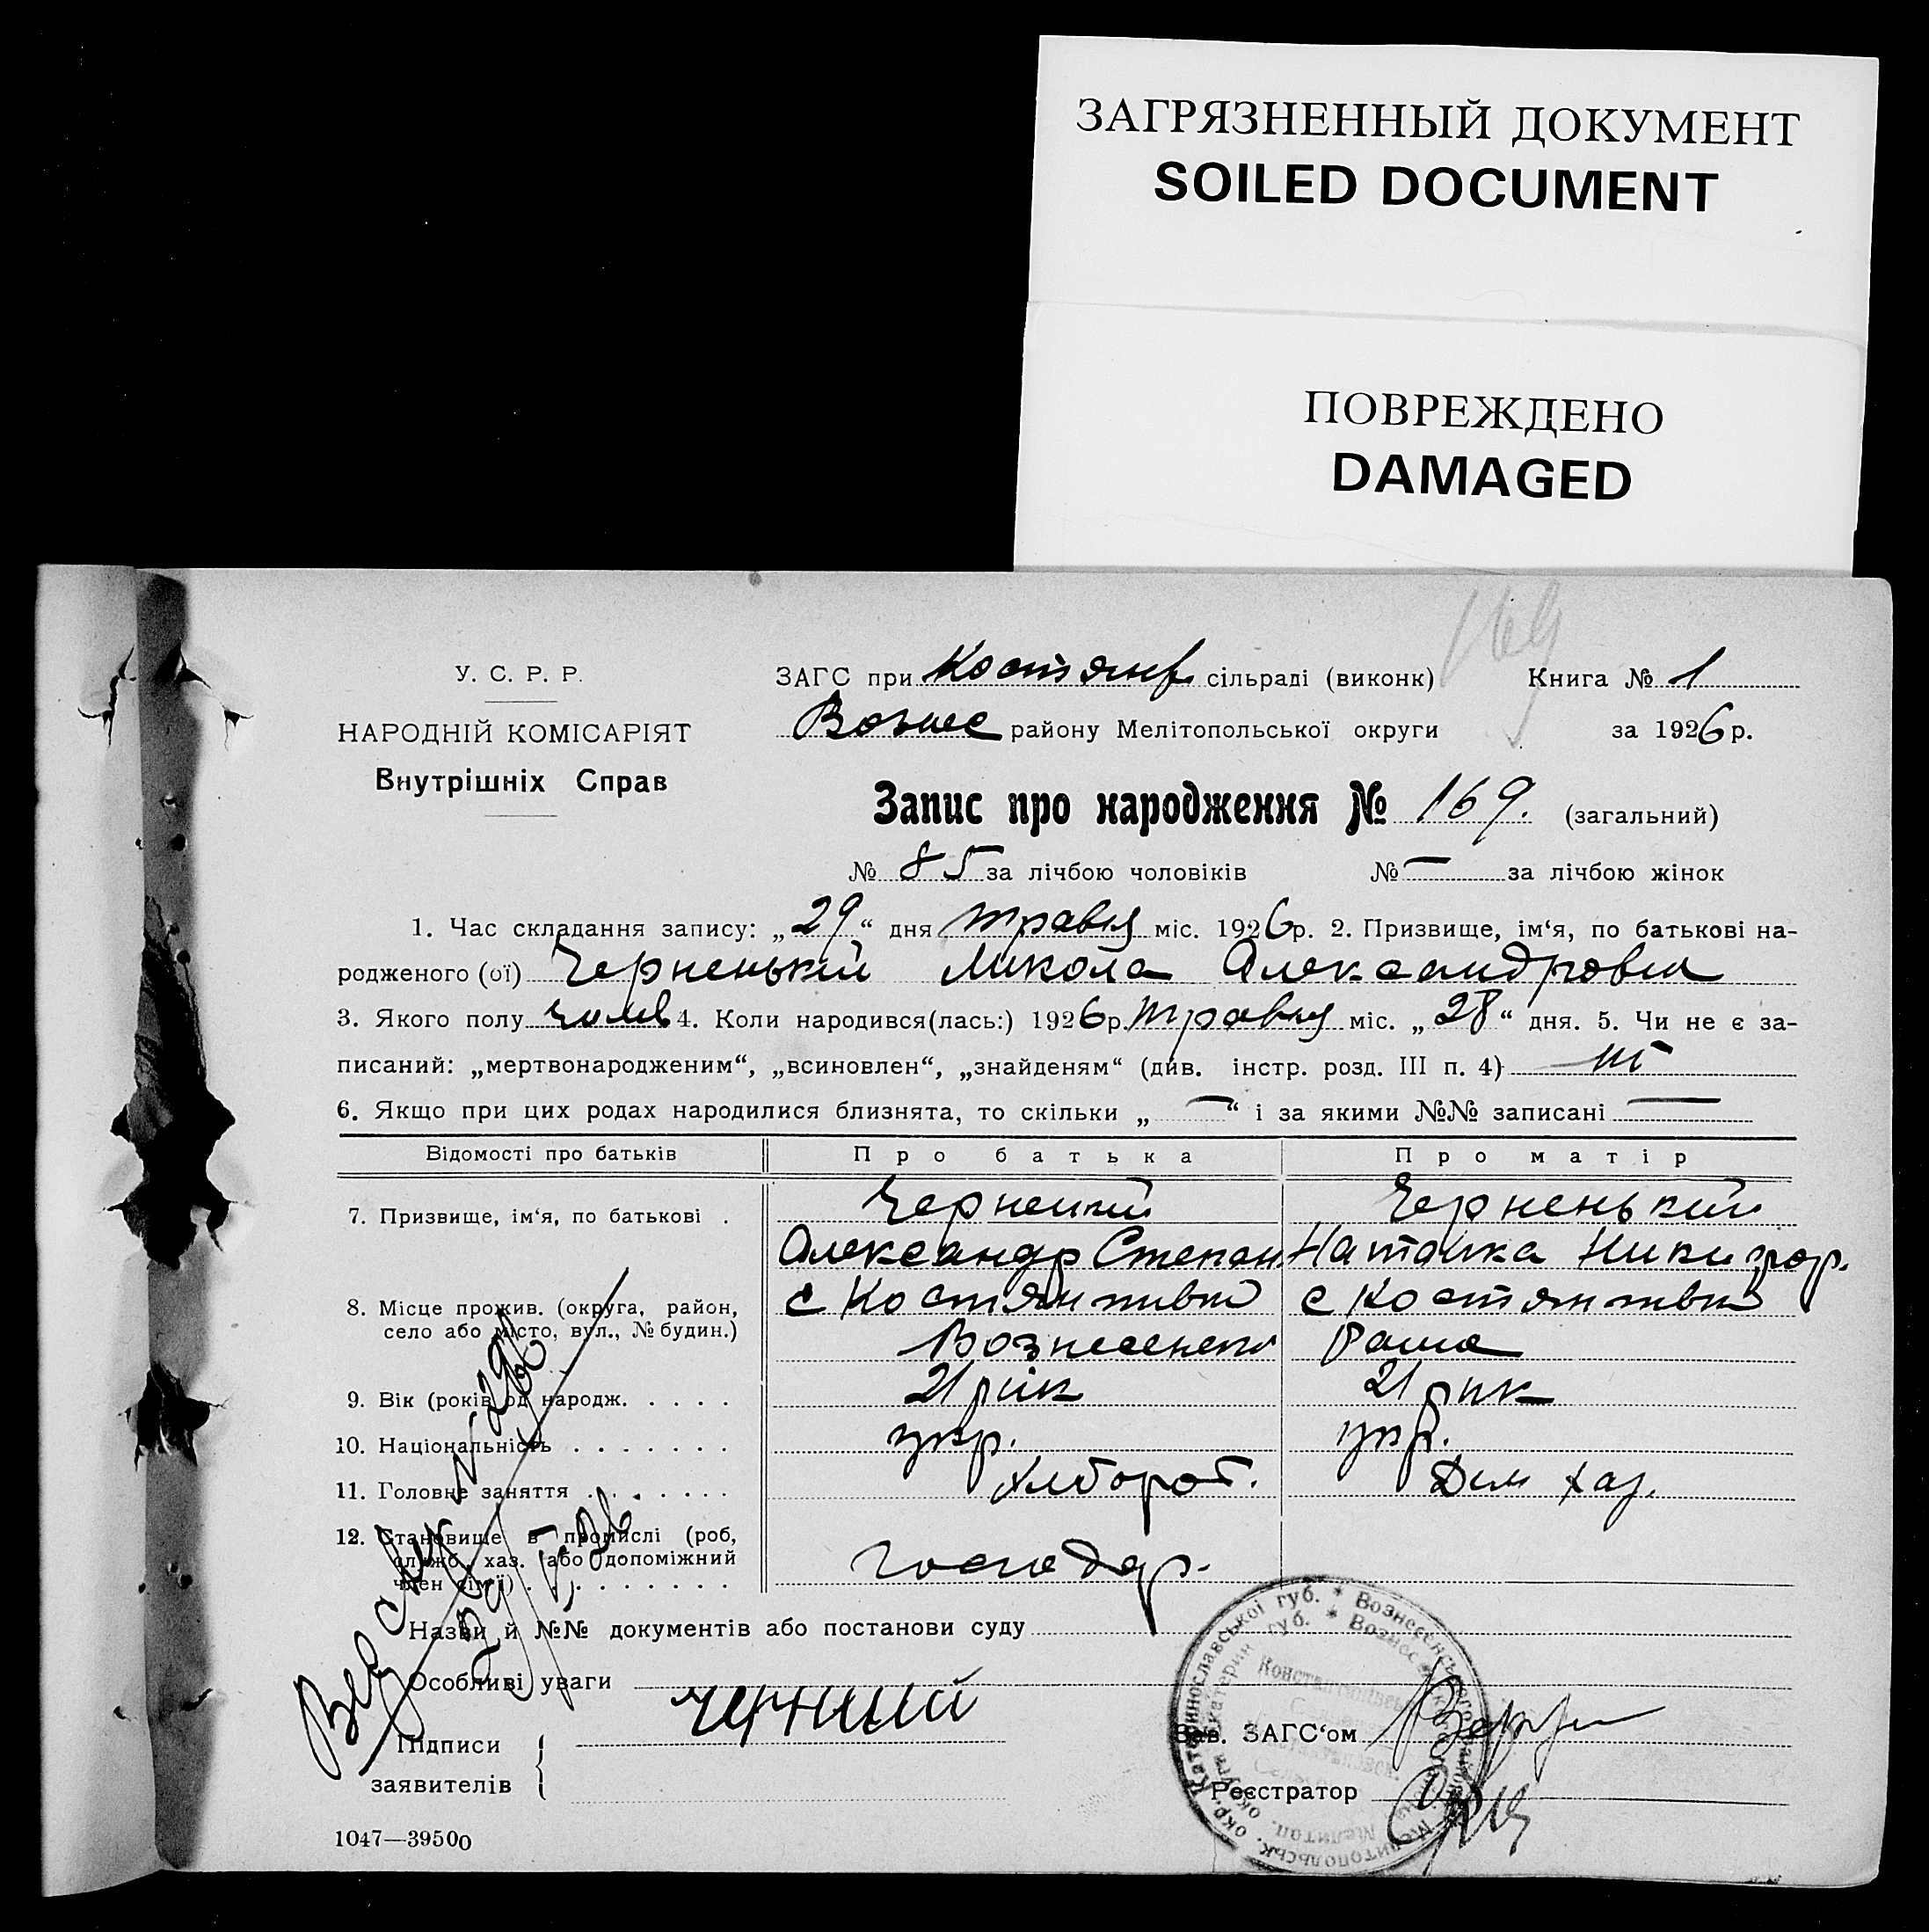 ЗАГРЯЗНЕННЫЙ ДОКУМЕНТ
SOILED DOCUMENT
ПОВРЕЖДЕНО
DAMAGED
169
У. С. Р. Р.
НАРОДНІЙ КОМІСАРІЯТ
Внутрішніх Справ
ЗАГС при Костянт. сільраді (виконк) Книга № 1
Вознес району Мелітопольської округи за 1926 р.
Запис про народження № 169. (загальний)
№ 85 за лічбою чоловіків № — за лічбою жінок
1. Час складання запису: „29“ дня травня міс. 1926 р. 2. Призвище, ім‘я, по батькові на-
родженого (ої) Черненький Микола Александровии
3. Якого полу чолов 4. Коли народився(лась:) 1926 р. травня міс. „28“ дня. 5. Чи не є за-
писаний: „мертвонародженим“, „всиновлен“, „знайденям“ (див. інстр. розд. III п. 4) ні
6. Якщо при цих родах народилися близнята, то скільки „—“ і за якими №№ записані —
Відомості про батьків Про батька Про матір
7. Призвище, ім‘я, по батькові . Черненкий Черненький
Александр Степан. Наталка Никифор.
8. Місце прожив. (округа, район, с Костянтивки с Костянтивки
село або місто, вул., № будин.) Вознесенски
9. Вік (років од народж. . . . . 21 рик 21 рик
10. Національність . . . . . . . укр. укр.
11. Головне заняття . . . . . . . Хлібороб. Дом хаз.
12. Становище в промислі (роб, служб, хаз. або допоміжний член сім‘ї) . . . . . . . . . господар.
Назви й №№ документів або постанови суду
Особливі уваги
Підписи заявителів
Зав. ЗАГС‘ом
Реєстратор
1047—39500